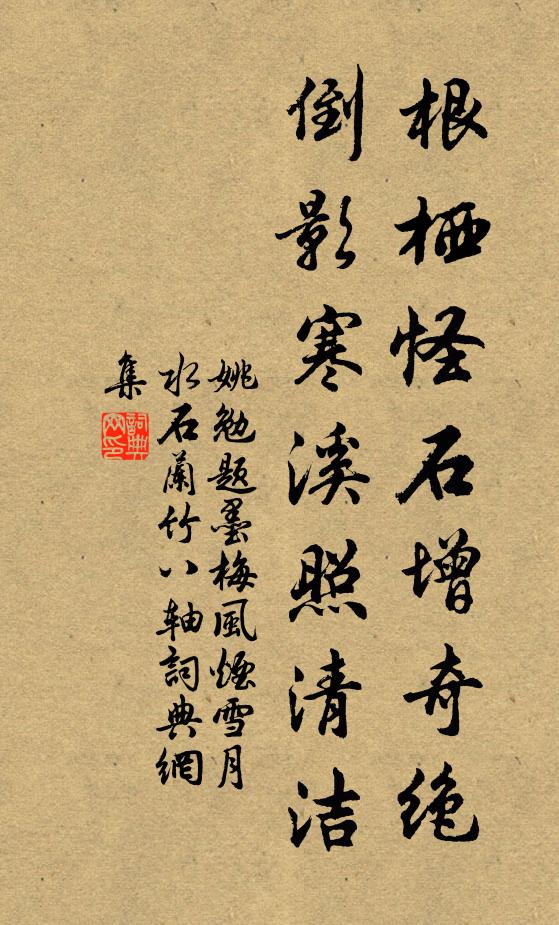 根栖怪石增奇绝
倒影寒溪照清洁
姚勉题墨梅風煙雪月
水石蘭竹八轴詞典網
集
詞典
网印